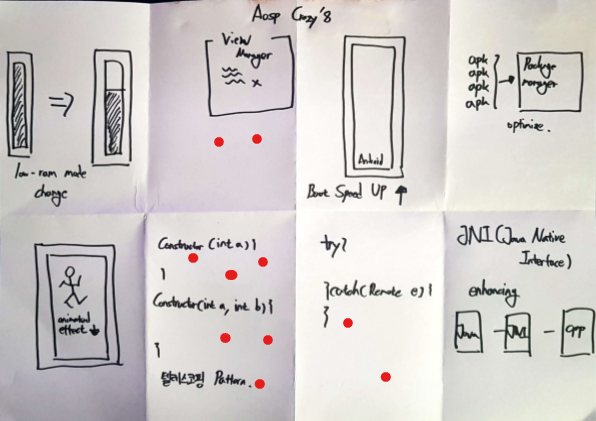 Aosp Crazy'8
low-ram mode
change
View
Manager
x
Android
Boot Speed UP ↑
apk
apk
apk
apk
Package
manager
optimize.
animated
effect ↓
Constructor (int a) {
}
Constructor(int a, int b) {
}
텔리스코핑 Pattern.
try {
} catch (Remote e) {
}
JNI (Java Native
Interface)
enhancing
Java - JNI - CPP